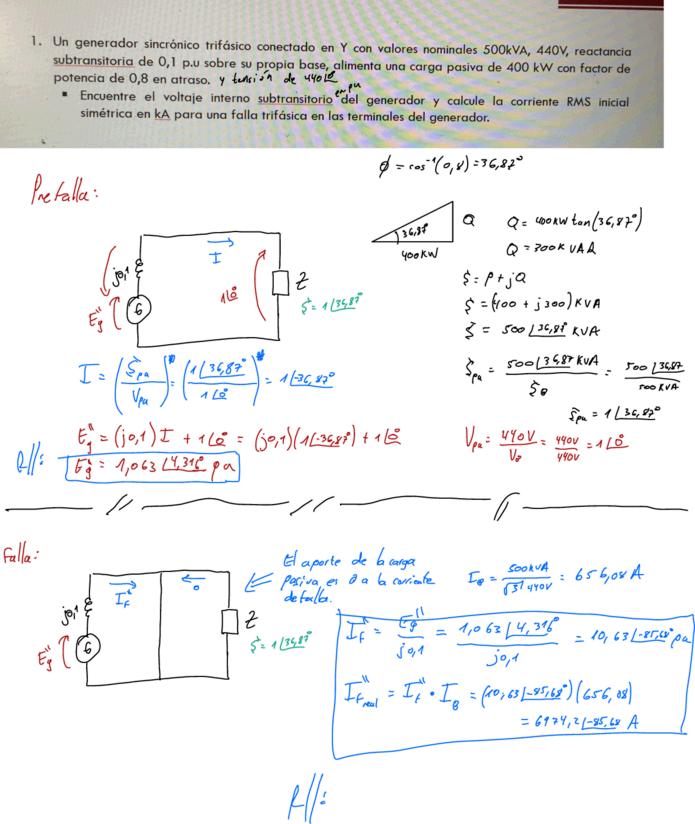 1. Un generador sincrónico trifásico conectado en Y con valores nominales 500kVA, 440V, reactancia
subtransitoria de 0,1 p.u sobre su propia base, alimenta una carga pasiva de 400 kW con factor de
potencia de 0,8 en atraso. y tensión de 440∠0°
en pu
▪ Encuentre el voltaje interno subtransitorio del generador y calcule la corriente RMS inicial
simétrica en kA para una falla trifásica en las terminales del generador.
ϕ = cos⁻¹(0,8) = 36,87°
Prefalla:
36,87°
Q
400KW
Q = 400KW tan(36,87°)
Q = 300K VAR
I
j0,1
G
Eg''
1∠0°
Z
Ṡ = 1∠36,87°
Ṡ = P + jQ
Ṡ = (400 + j300) KVA
Ṡ = 500∠36,87° KVA
Ṡpu = 500∠36,87 KVA / SB = 500∠36,87 / 500KVA
Ṡpu = 1∠36,87°
I = (Ṡpu / Vpu)* = (1∠36,87° / 1∠0°)* = 1∠-36,87°
Eg'' = (j0,1) I + 1∠0° = (j0,1)(1∠-36,87°) + 1∠0°
R//: Eg'' = 1,063∠4,316° pu
Vpu = 440V / VB = 440V / 440V = 1∠0°
Falla:
If''
0
j0,1
G
Eg''
Z
Ṡ = 1∠36,87°
El aporte de la carga
pasiva es 0 a la corriente
de falla.
IB = 500KVA / √3 440V = 656,08 A
If'' = Eg'' / j0,1 = 1,063∠4,316° / j0,1 = 10,63∠-85,68° pu
If''real = If'' · IB = (10,63∠-85,68°)(656,08)
= 6974,2∠-85,68 A
R//: